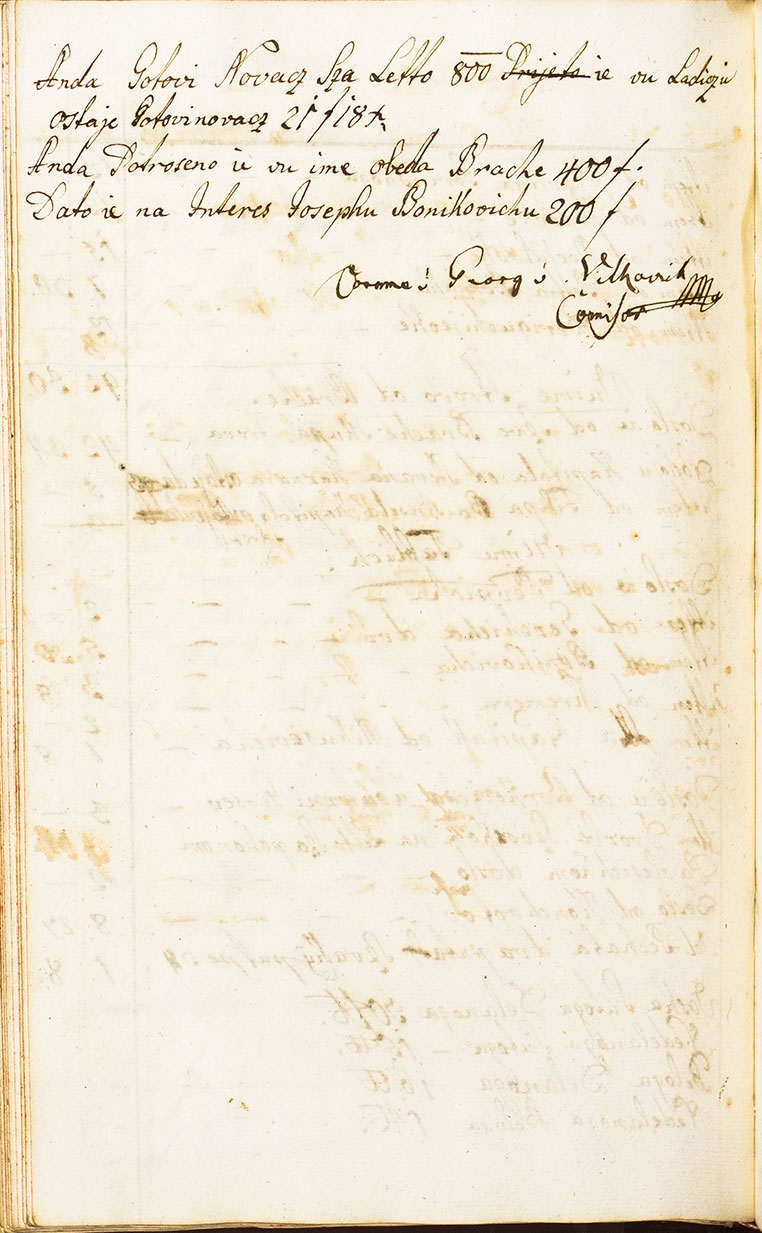 Anda Gotovi Novacz Sza Letto 800 Prijeto ie vu Ladiczu
ostaje Gotovinovacz 21 f 18 x
Anda Potroseno ie vu ime obeda Brache 400 f.
Dato ie na Interes Josephu Bonikovichu 200 f
Georg Vilkovich
Comisar